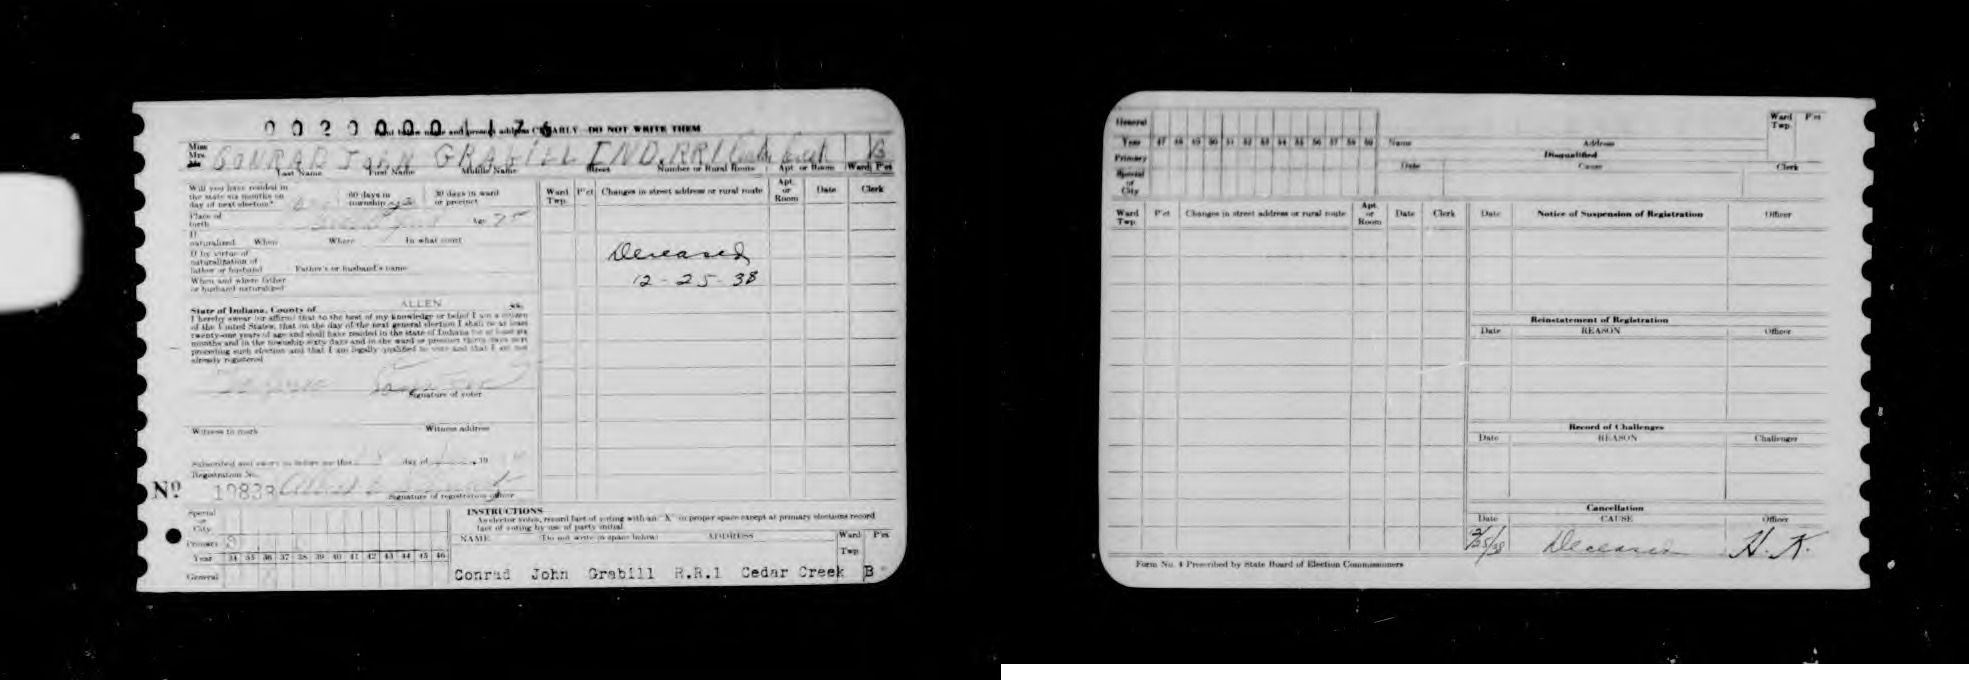 0 0 2 0 0 0 0 1 1 7
ARLY—DO NOT WRITE THEM
Miss
Mrs.
CONRAD JOHN GRABILL IND. RR1 Cedar Creek B
Last Name First Name Middle Name Street Number or Rural Route Apt. or Room Ward P'ct
Will you have resided in
the state six months on
day of next election?
60 days in
township yes
30 days in ward
or precinct
Place of
birth
Age 75
If
naturalized When Where In what court
If by virtue of
naturalization of
father or husband Father's or husband's name
When and where father
or husband naturalized
ALLEN
State of Indiana, County of ss.
I hereby swear (or affirm) that to the best of my knowledge or belief I am a citizen
of the United States, that on the day of the next general election I shall be at least
twenty-one years of age and shall have resided in the state of Indiana for at least six
months and in the township sixty days and in the ward or precinct thirty days next
preceding such election and that I am legally qualified to vote and that I am not
already registered
Signature of voter
Witness to mark Witness address
Subscribed and sworn to before me this day of 19
Registration No.
Nº 19838
Signature of registration officer
Special
or
City
Primary
Year 34 35 36 37 38 39 40 41 42 43 44 45 46
General
Ward
Twp.
P'ct
Changes in street address or rural route
Apt.
or
Room
Date
Clerk
Deceased
12-25-38
INSTRUCTIONS
As elector votes, record fact of voting with an "X" in proper space except at primary elections record
fact of voting by use of party initial.
NAME (Do not write in space below) ADDRESS Ward P'ct
Twp.
Conrad John Grabill R.R.1 Cedar Creek B
General
Year 47 48 49 50 51 52 53 54 55 56 57 58 59 60
Primary
Special
or
City
Name Address
Ward
Twp.
P'ct
Disqualified
Date Cause Clerk
Ward
Twp.
P'ct
Changes in street address or rural route
Apt.
or
Room
Date
Clerk
Date Notice of Suspension of Registration Officer
Reinstatement of Registration
Date REASON Officer
Record of Challenges
Date REASON Challenger
Cancellation
Date CAUSE Officer
12/25/38 Deceased H. K.
Form No. 4 Prescribed by State Board of Election Commissioners